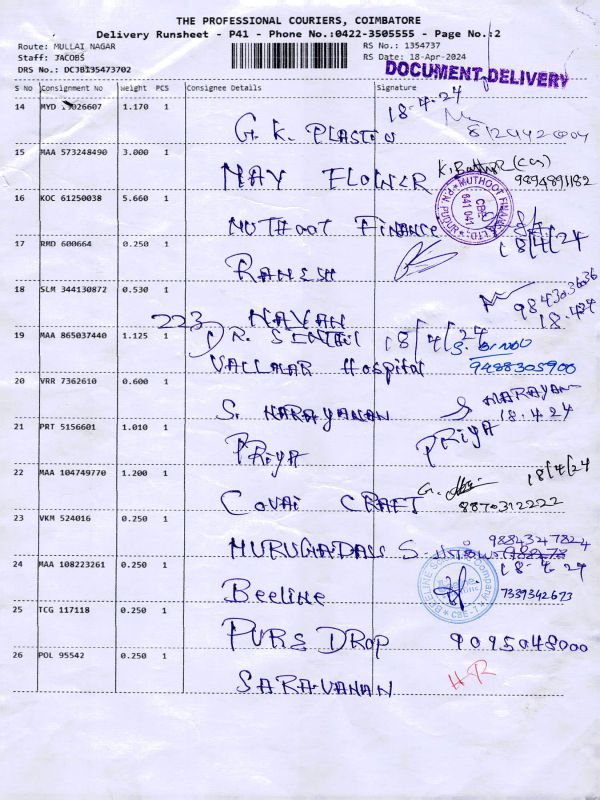 THE PROFESSIONAL COURIERS, COIMBATORE
Delivery Runsheet - P41 - Phone No.:0422-3505555 - Page No.:2
Route: MULLAI NAGAR
RS No.: 1354737
Staff: JACOBS
RS Date: 18-Apr-2024
DRS No.: DCJB135473702
DOCUMENT DELIVERY
S No Consignment No Weight PCS Consignee Details Signature
14 MYD 19026607 1.170 1
18-4-24
G.K. PLASTO
15 MAA 573248490 3.000 1
MAY FLOWER
9894891182
16 KOC 61250038 5.660 1
MUTHOOT FINANCE
MUTHOOT FINANCE LTD.
CBE
641 041
P.N. PUDUR
17 RMD 600664 0.250 1
18/4/24
RAMESH
18 SLM 344130872 0.530 1
NAVAN
18.4.24
19 MAA 865037440 1.125 1
223
DR. SENTHIL
18/4/24
VALLALAR Hospital
9488305900
20 VRR 7362610 0.600 1
S. NARAYANAN
S NARAYAN
18.4.24
21 PRT 5156601 1.010 1
PRIYA
PRIYA
22 MAA 104749770 1.200 1
18/4/24
COVAI CRAFT
8870312222
23 VKM 524016 0.250 1
MURUGADASS
9884347824
24 MAA 108223261 0.250 1
18-4-24
Beeline
7339342673
25 TCG 117118 0.250 1
PURE DROP
9095048000
26 POL 95542 0.250 1
SARAVANAN